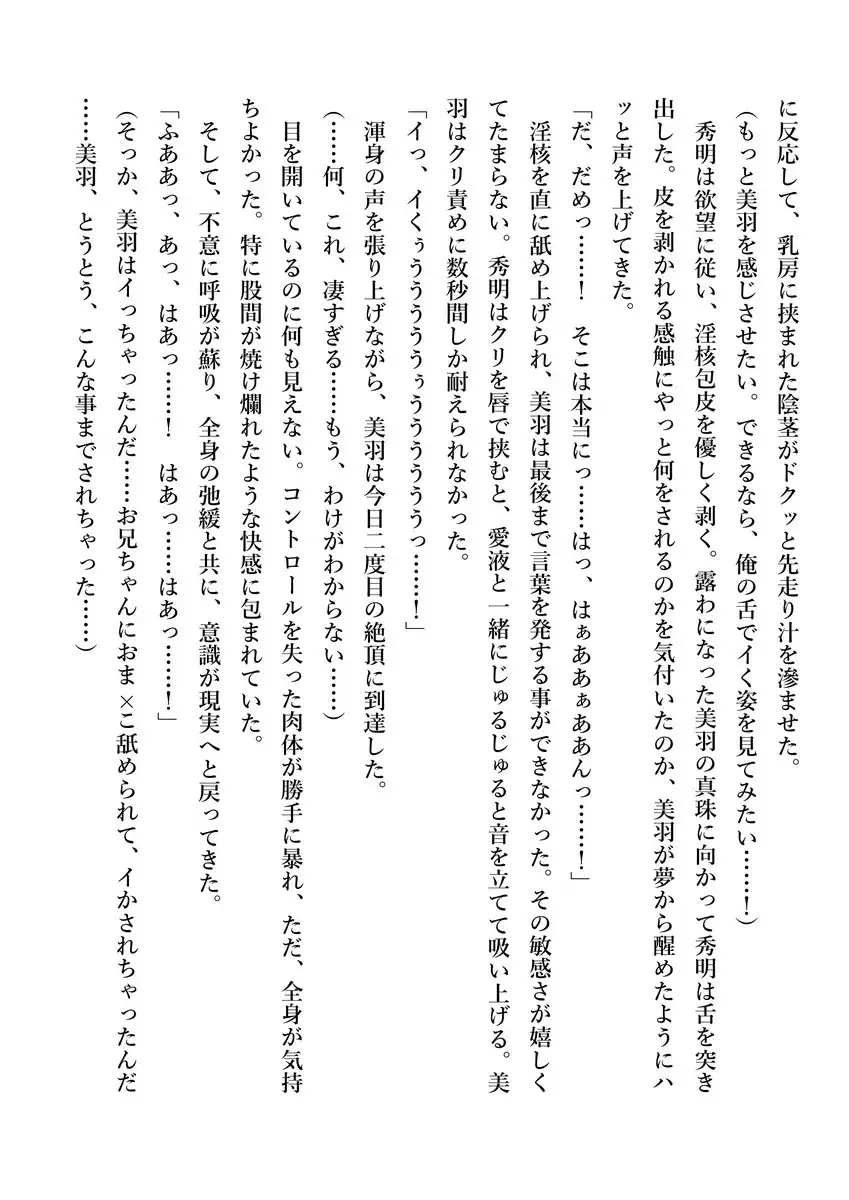 に反応して、乳房に挟まれた陰茎がドクッと先走り汁を滲ませた。
(もっと美羽を感じさせたい。できるなら、俺の舌でイく姿を見てみたい……!)
秀明は欲望に従い、淫核包皮を優しく剥く。露わになった美羽の真珠に向かって秀明は舌を突き
出した。皮を剥かれる感触にやっと何をされるのかを気付いたのか、美羽が夢から醒めたようにハ
ッと声を上げてきた。
「だ、だめっ……! そこは本当にっ……はっ、はぁああぁああんっ……!」
淫核を直に舐め上げられ、美羽は最後まで言葉を発する事ができなかった。その敏感さが嬉しく
てたまらない。秀明はクリを唇で挟むと、愛液と一緒にじゅるじゅると音を立てて吸い上げる。美
羽はクリ責めに数秒間しか耐えられなかった。
「イっ、イくぅうううううぅううううううっ……!」
渾身の声を張り上げながら、美羽は今日二度目の絶頂に到達した。
(……何、これ、凄すぎる……もう、わけがわからない……)
目を開いているのに何も見えない。コントロールを失った肉体が勝手に暴れ、ただ、全身が気持
ちよかった。特に股間が焼け爛れたような快感に包まれていた。
そして、不意に呼吸が蘇り、全身の弛緩と共に、意識が現実へと戻ってきた。
「ふああっ、あっ、はあっ……! はあっ……はあっ……!」
(そっか、美羽はイっちゃったんだ……お兄ちゃんにおま×こ舐められて、イかされちゃったんだ
……美羽、とうとう、こんな事までされちゃった……)